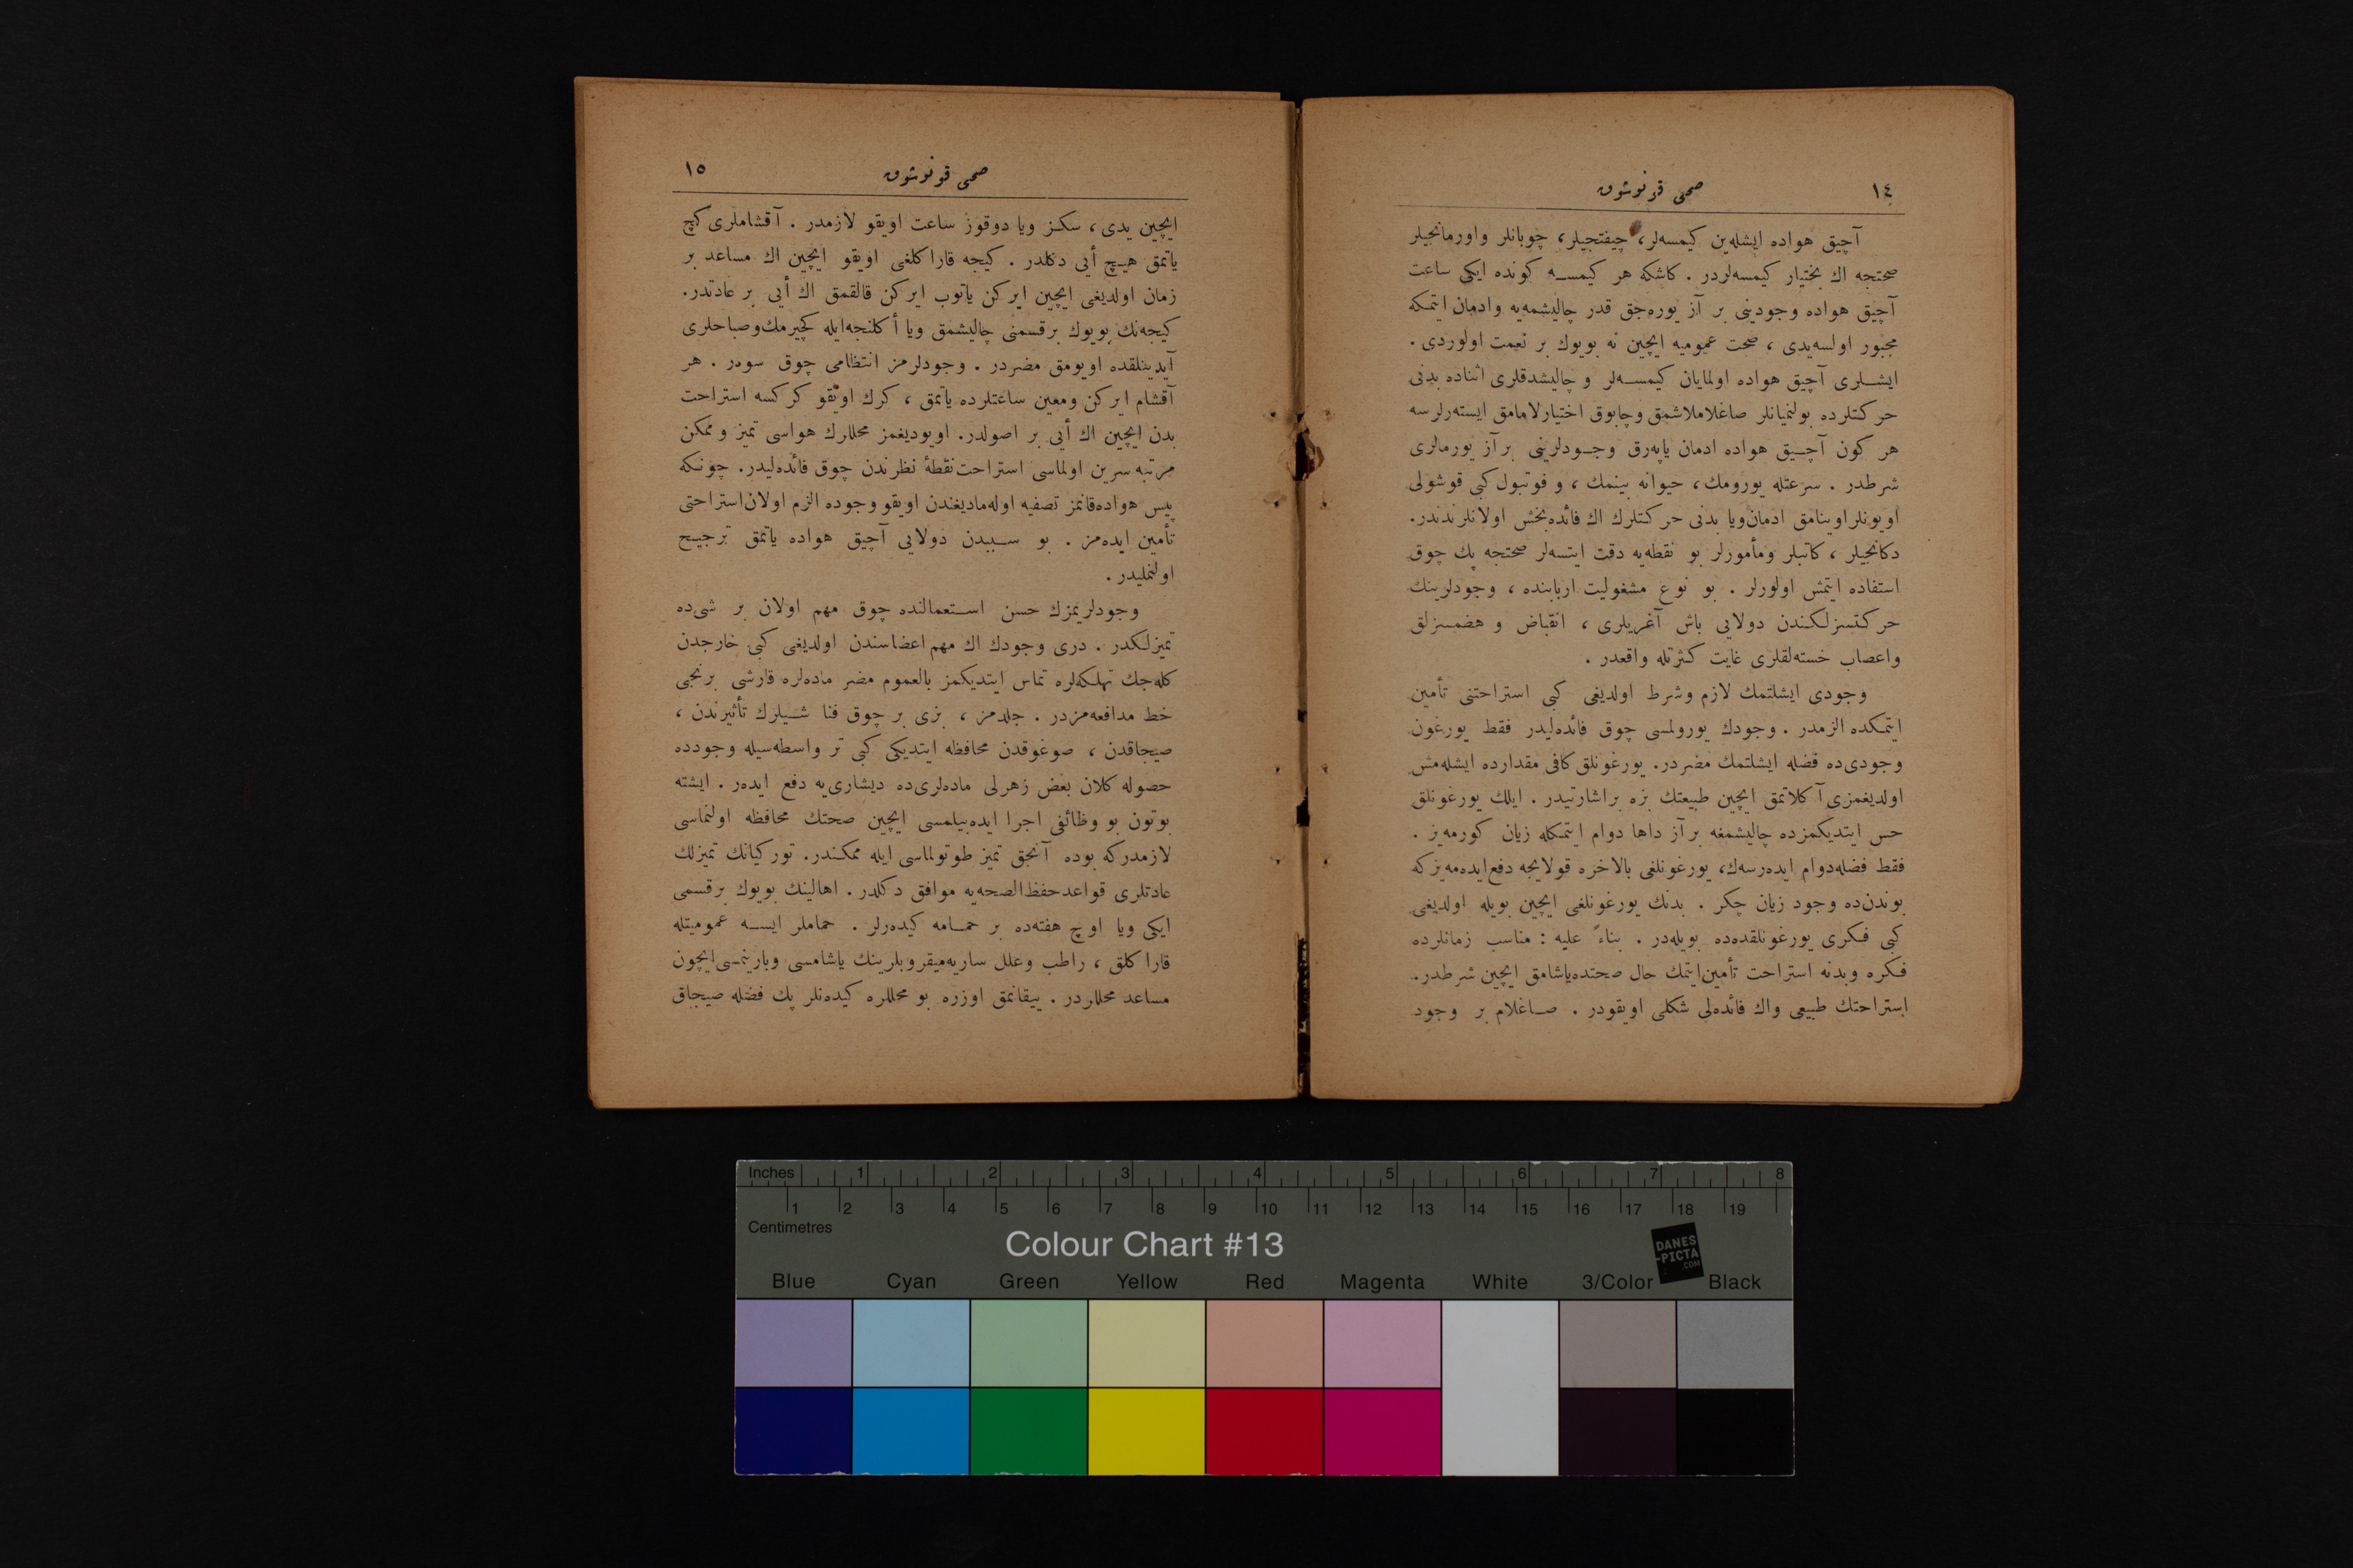 ١٤
صحی قونوشوق
آچیق هواده ایشله‌ین کیمسه‌لر، چیفتجیلر، چوبانلر واورمانجیلر
صحتجه اك بختیار کیمسه‌لردر . کاشکه هر کیمسـه کونده ایکی ساعت
آچیق هواده وجودینی بر آز یوره‌جق قدر چالیشمه‌یه وادمان ایتمکه
مجبور اولسه‌یدی ، صحت عمومیه ایچین نه بویوك بر نعمت اولوردی .
ایشـلری آچیق هواده اولمایان کیمسـه‌لر و چالیشدقلری اثناده بدنی
حرکتلرده بولنمیانلر صاغلاملاشمق وچابوق اختیارلامامق ایسته‌رلرسه
هر کون آچـیق هواده ادمان یاپه‌رق وجـودلرینی بر آز یورمالری
شرطدر . سرعتله یورومك، حیوانه بینمك ، و فوتبول کبی قوشولی
اویونلر اوینامق ادمان ویا بدنی حرکتلرك اك فائده‌بخش اولانلرنددر.
دکانجیلر ، کاتبلر ومأمورلر بو نقطه‌یه دقت ایتسه‌لر صحتجه پك چوق
استفاده ایتمش اولورلر . بو نوع مشغولیت اربابنده ، وجودلرینك
حرکتسزلکندن دولایی باش آغریلری ، انقباض و هضمسزلق
واعصاب خسته‌لقلری غایت کثرتله واقعدر .
وجودی ایشلتمك لازم وشرط اولدیغی کبی استراحتنی تأمین
ایتمکده الزمدر . وجودك یورولمسی چوق فائده‌لیدر فقط یورغون
وجودی‌ده فضله ایشلتمك مضردر. یورغونلق کافی مقدارده ایشله‌مش
اولدیغمزی آکلاتمق ایچین طبیعتك بزه بر اشارتیدر . ایلك یورغونلق
حس ایتدیکمزده چالیشمغه بر آز داها دوام ایتمکله زیان کورمه‌یز .
فقط فضله دوام ایده‌رسه‌ك، یورغونلغی بالاخره قولایجه دفع ایده‌مه‌یزکه
بوندن‌ده وجود زیان چکر . بدنك یورغونلغی ایچین بویله اولدیغی
کبی فکری یورغونلقده‌ده بویله‌در . بناءً علیه : مناسب زمانلرده
فکره وبدنه استراحت تأمین ایتمك حال صحتده یاشامق ایچین شرطدر.
استراحتك طبیعی واك فائده‌لی شکلی اویقودر . صـاغلام بر وجود
١٥
صحی قونوشوق
ایچین یدی ، سکـز ویا دوقوز ساعت اویقو لازمدر . آقشاملری کچ
یاتمق هیـچ أیی دکلدر . کیجه قاراکلغی اویقو ایچین اك مساعد بر
زمان اولدیغی ایچین ایرکن یاتوب ایرکن قالقمق اك أیی بر عادتدر.
کیجه‌نك بویوك بر قسمنی چالیشمق ویا أکلنجه‌ایله کچیرمك وصباحلری
آیدینلقده اویومق مضردر . وجودلرمز انتظامی چوق سوه‌ر . هر
آقشام ایرکن ومعین ساعتلرده یاتمق ، کرك اویقو کرکسه استراحت
بدن ایچین اك أیی بر اصولدر. اویودیغمز محللرك هواسی تمیز و ممکن
مرتبه سرین اولماسی استراحت نقطهٔ نظرندن چوق فائده‌لیدر. چونکه
پیس هواده‌قانمز تصفیه اوله‌مادیغندن اویقو وجوده الزم اولان استراحتی
تأمین ایده‌مز . بو سـببدن دولایی آچیق هواده یاتمق ترجیـح
اولنملیدر .
وجودلریمزك حسن اسـتعمالنده چوق مهم اولان بر شی‌ده
تمیزلکدر . دری وجودك اك مهم اعضاسندن اولدیغی کبی خارجدن
کله‌جك تهلکه‌لره تماس ایتدیکمز بالعموم مضر ماده‌لره قارشی برنجی
خط مدافعه‌مزدر . جلدمز ، بزی بر چوق فنا شـیلرك تأثیرندن ،
صیجاقدن ، صوغوقدن محافظه ایتدیکی کبی تر واسطه‌سیله وجودده
حصوله کلان بعض زهرلی ماده‌لری‌ده دیشاری‌یه دفع ایده‌ر . ایشته
بوتون بو وظائفی اجرا ایده‌بیلمسی ایچین صحتك محافظه اولنماسی
لازمدرکه بوده آنجق تمیز طوتولماسی ایله ممکندر. تورکیانك تمیزلك
عادتلری قواعد حفظ الصحه‌یه موافق دکلدر . اهالینك بویوك برقسمی
ایکی ویا اوچ هفته‌ده بر حمـامه کیده‌رلر . حماملر ایسـه عمومیتله
قاراکلق ، راطب وعلل ساریه‌میقروبلرینك یاشامسی وبارینمسی ایچون
مساعد محللردر . ییقانمق اوزره بو محللره کیده‌نلر پك فضله صیجاق
Inches 1 2 3 4 5 6 7 8
1 2 3 4 5 6 7 8 9 10 11 12 13 14 15 16 17 18 19
Centimetres
Colour Chart #13
DANES
-PICTA
.COM
Blue Cyan Green Yellow Red Magenta White 3/Color Black